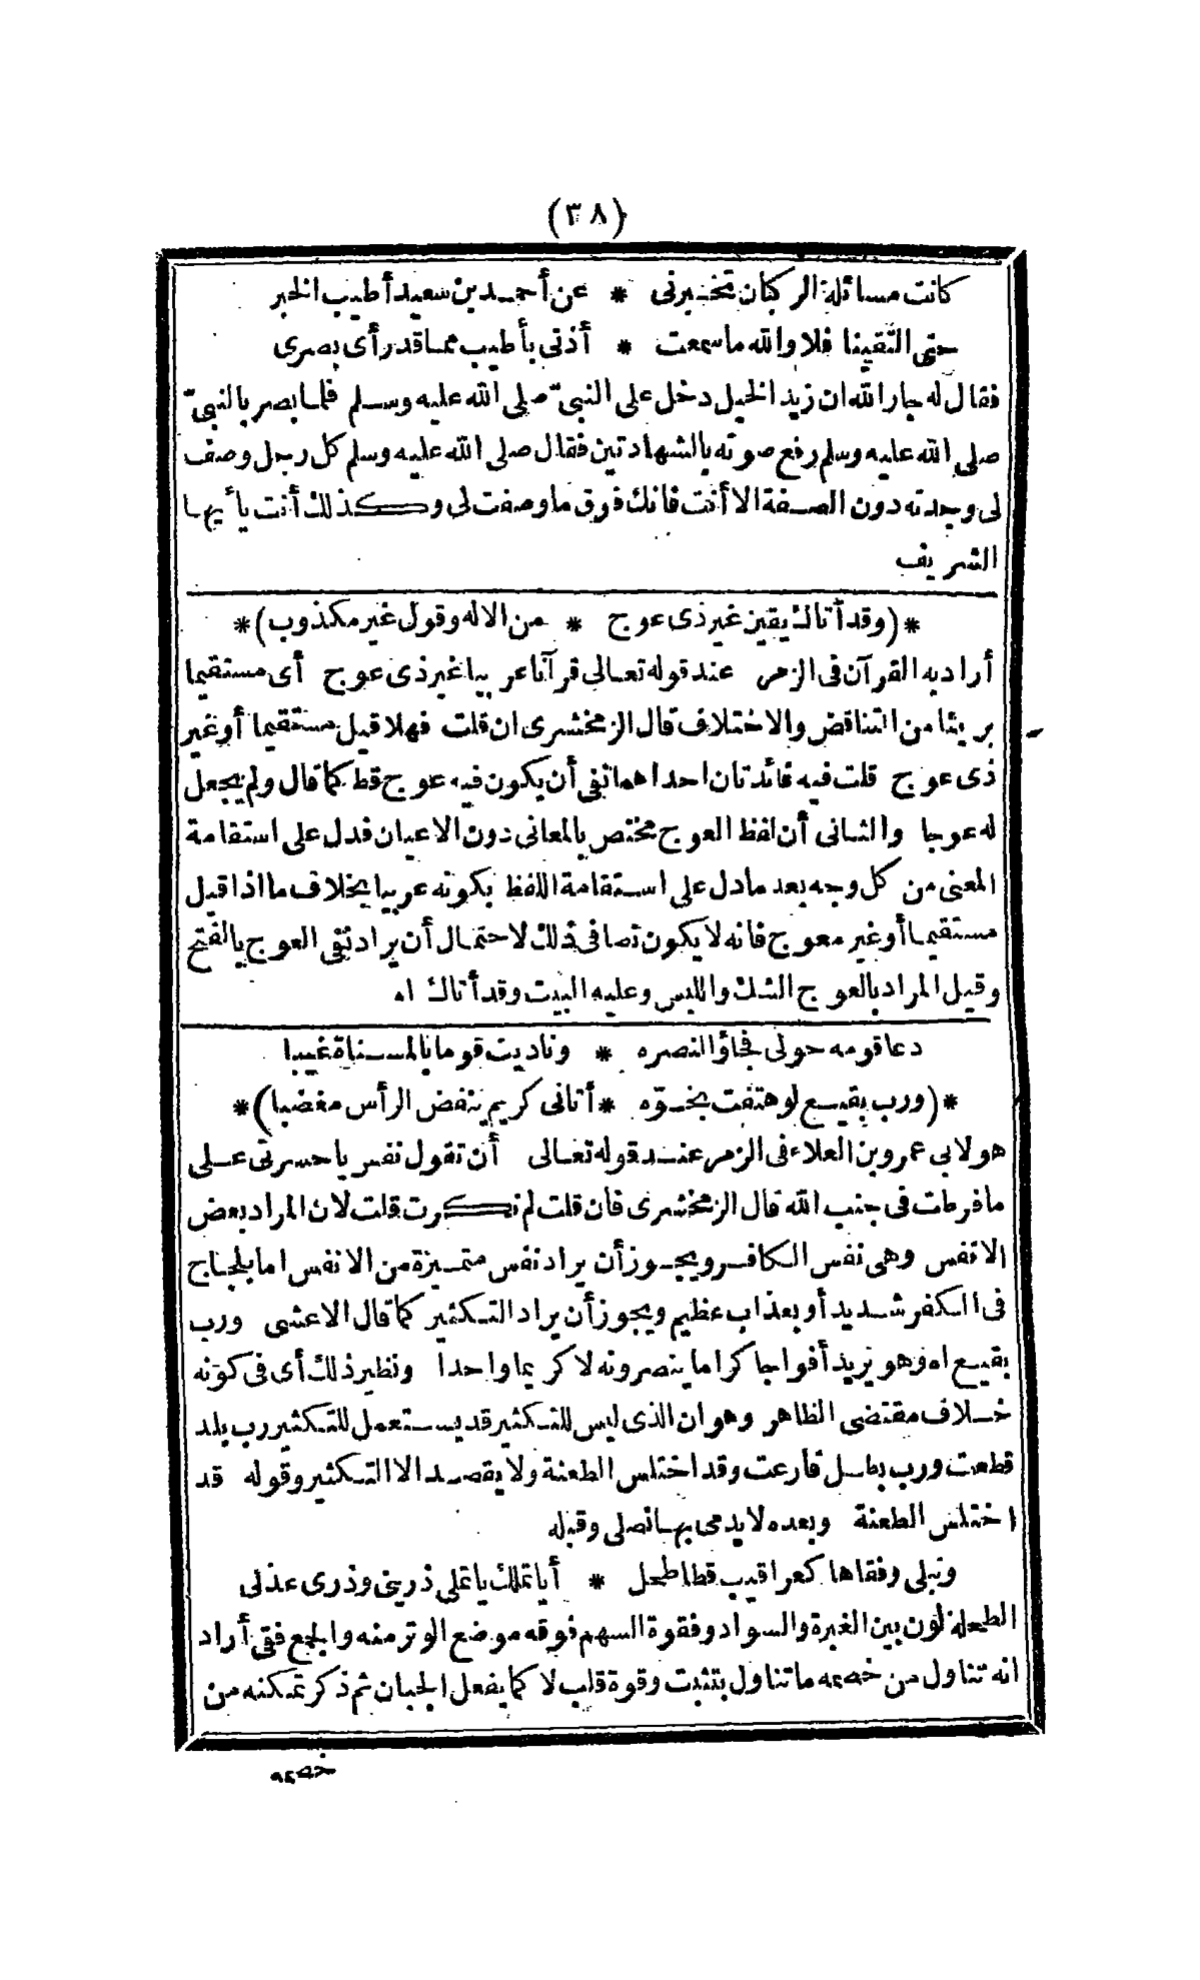 (٣٨)
كانت مسائلة الركبان تخبرنى * عن أحمد بن سعيد أطيب الخبر
حتى التقينا فلا والله ما سمعت * أذنى بأطيب مما قد رأى بصرى
فقال له جار الله ان زيد الخيل دخل على النبىّ صلى الله عليه وسلم فلما بصر بالنبىّ
صلى الله عليه وسلم رفع صوته بالشهادتين فقال صلى الله عليه وسلم كل رجل وصف
لى وجدته دون الصفة الا أنت فانك فوق ما وصفت لى وكذلك أنت يا أيها
الشريف
*(وقد أتاك يقين غير ذى عوج * من الاله وقول غير مكذوب)*
أراد به القرآن فى الزمر عند قوله تعالى قرآنا عربيا غير ذى عوج أى مستقيما
بريئا من التناقض والاختلاف قال الزمخشرى ان قلت فهلا قيل مستقيما أو غير
ذى عوج قلت فيه فائدتان احداهما نفى أن يكون فيه عوج قط كما قال ولم يجعل
له عوجا والثانى أن لفظ العوج مختص بالمعانى دون الاعيان فدل على استقامة
المعنى من كل وجه بعد ما دل على استقامة اللفظ بكونه عربيا بخلاف ما اذا قيل
مستقيما أو غير معوج فانه لا يكون نصا فى ذلك لاحتمال أن يراد نفى العوج بالفتح
وقيل المراد بالعوج الشك واللبس وعليه البيت وقد أتاك اه
دعا قومه حولى فجاؤا لنصره * وناديت قوما بالمسناة غيبا
*(ورب بقيع لو هتفت بجوّه * أتانى كريم ينفض الرأس مغضبا)*
هو لابى عمرو بن العلاء فى الزمر عند قوله تعالى أن تقول نفس يا حسرتى على
ما فرطت فى جنب الله قال الزمخشرى فان قلت لم نكرت قلت لان المراد بعض
الانفس وهى نفس الكافر ويجوز أن يراد نفس متميزة من الانفس اما بلجاج
فى الكفر شديد أو بعذاب عظيم ويجوز أن يراد التكثير كما قال الاعشى ورب
بقيع اه وهو يريد أفواجا كراما ينصرونه لا كريما واحدا ونظير ذلك أى فى كونه
خلاف مقتضى الظاهر وهو ان الذى ليس للتكثير قد يستعمل للتكثير رب بلد
قطعت ورب بطل قارعت وقد اختلس الطعنة ولا يقصد الا التكثير وقوله قد
اختلس الطعنة وبعده لا يدمى بها نصلى وقبله
ونبلى وفقاها كعراقيب قطا طحل * أيا تملك يا تملى ذرينى وذرى عذلى
الطحلة لون بين الغبرة والسواد وفقوة السهم فوقه موضع الوتر منه والجمع فقى أراد
انه تناول من خصمه ما تناول بتثبت وقوة قلب لا كما يفعل الجبان ثم ذكر تمكنه من
خصمه